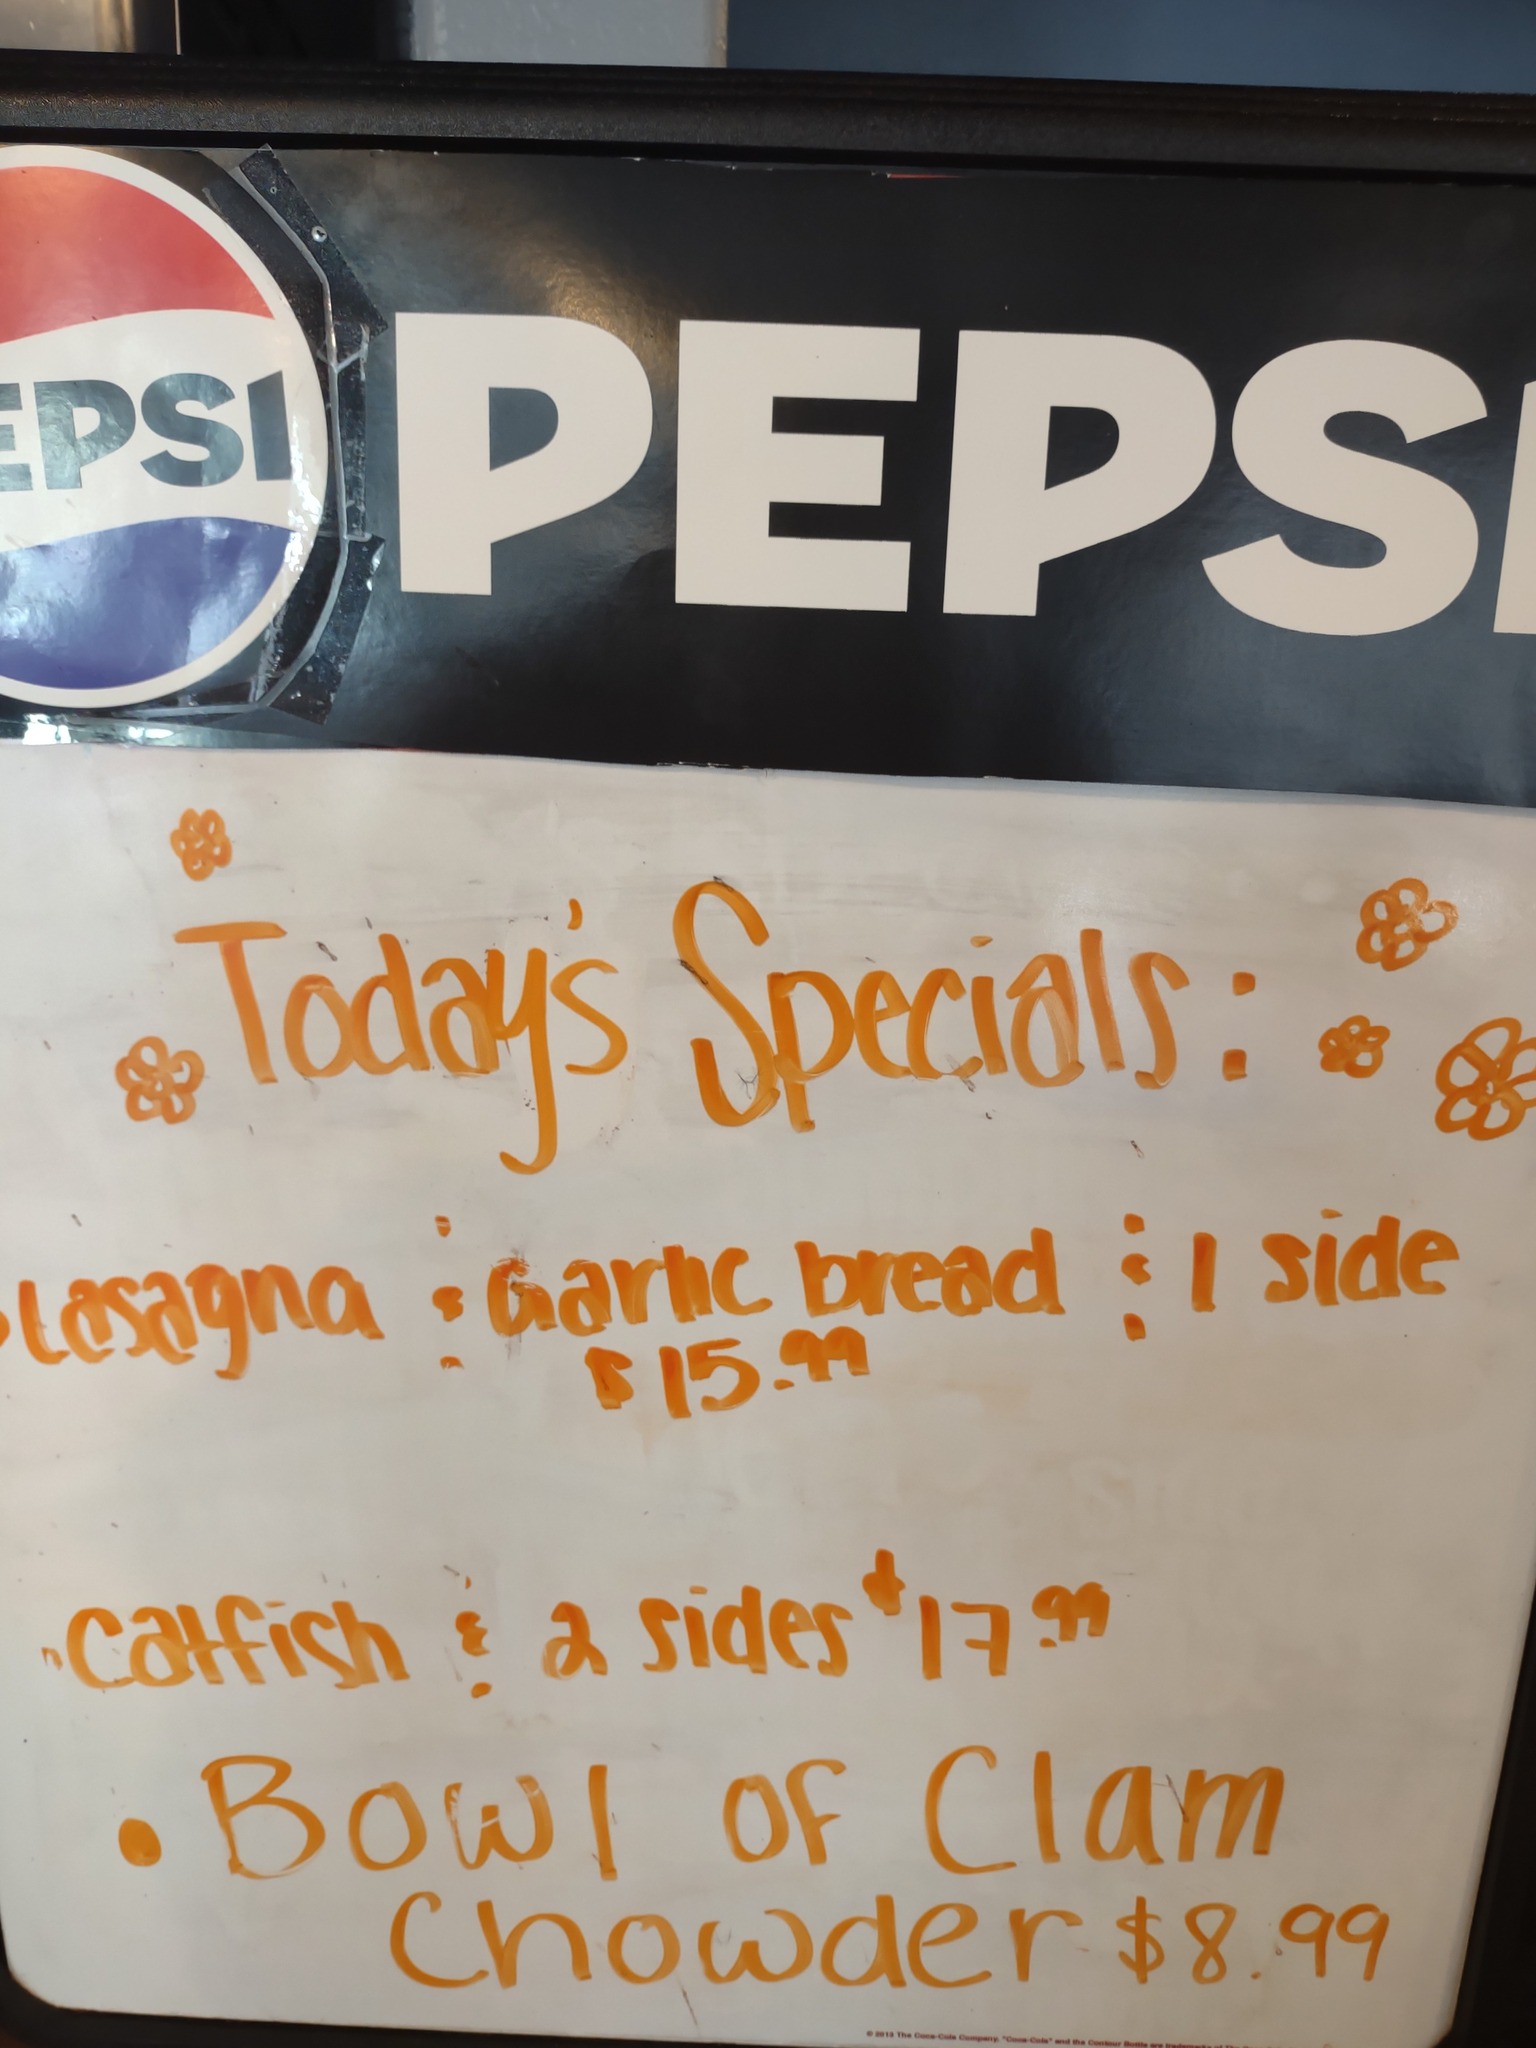 EPSI
PEPSI
Today's Specials:
• Lasagna & Garlic bread & 1 side
$15.99
• Catfish & 2 sides $17.99
• Bowl of Clam
Chowder $8.99
© 2013 The Coca-Cola Company. "Coca-Cola" and the Contour Bottle are trademarks of The